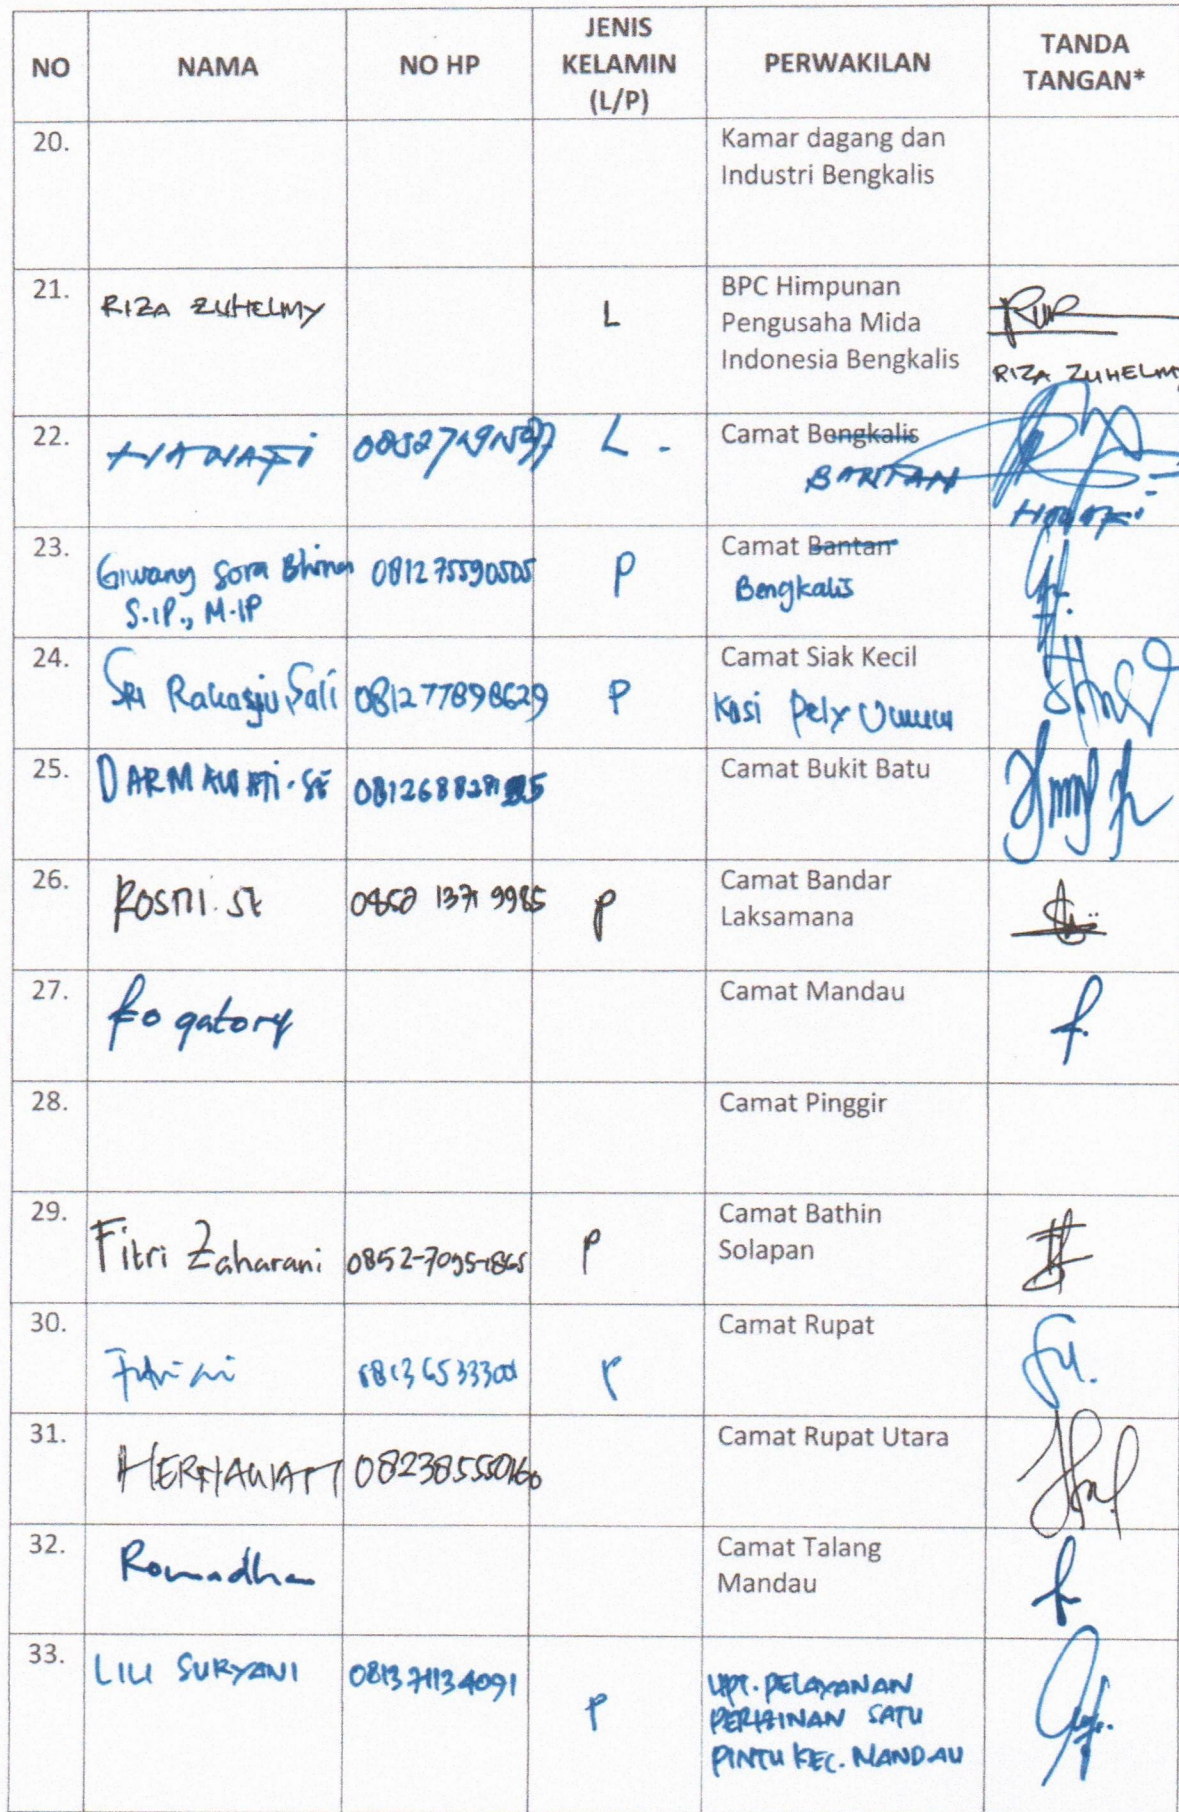 NO NAMA NO HP JENIS KELAMIN (L/P) PERWAKILAN TANDA TANGAN*
20. Kamar dagang dan
Industri Bengkalis
21. RIZA ZUHELMY L BPC Himpunan
Pengusaha Mida
Indonesia Bengkalis
RIZA ZUHELMY
22. HAWAFI L - Camat Bengkalis
BANTAN
HAWAFI
23. Giwang Sora Bhina 081275590505 P Camat Bantan
S.IP., M.IP Bengkalis
24. Sri 081277898629 P Camat Siak Kecil
Kasi Pely Umum
25. DARMAWATI.SE Camat Bukit Batu
26. ROSNI.SE 0852 1371 9985 P Camat Bandar
Laksamana
27. Camat Mandau
28. Camat Pinggir
29. Fitri Zaharani 0852-7095-1865 P Camat Bathin
Solapan
30. P Camat Rupat
31. HERNAWATI Camat Rupat Utara
32. Romadhan Camat Talang
Mandau
33. LILI SURYANI 081371134091 P UPT. PELAYANAN
PERIZINAN SATU
PINTU KEC. MANDAU